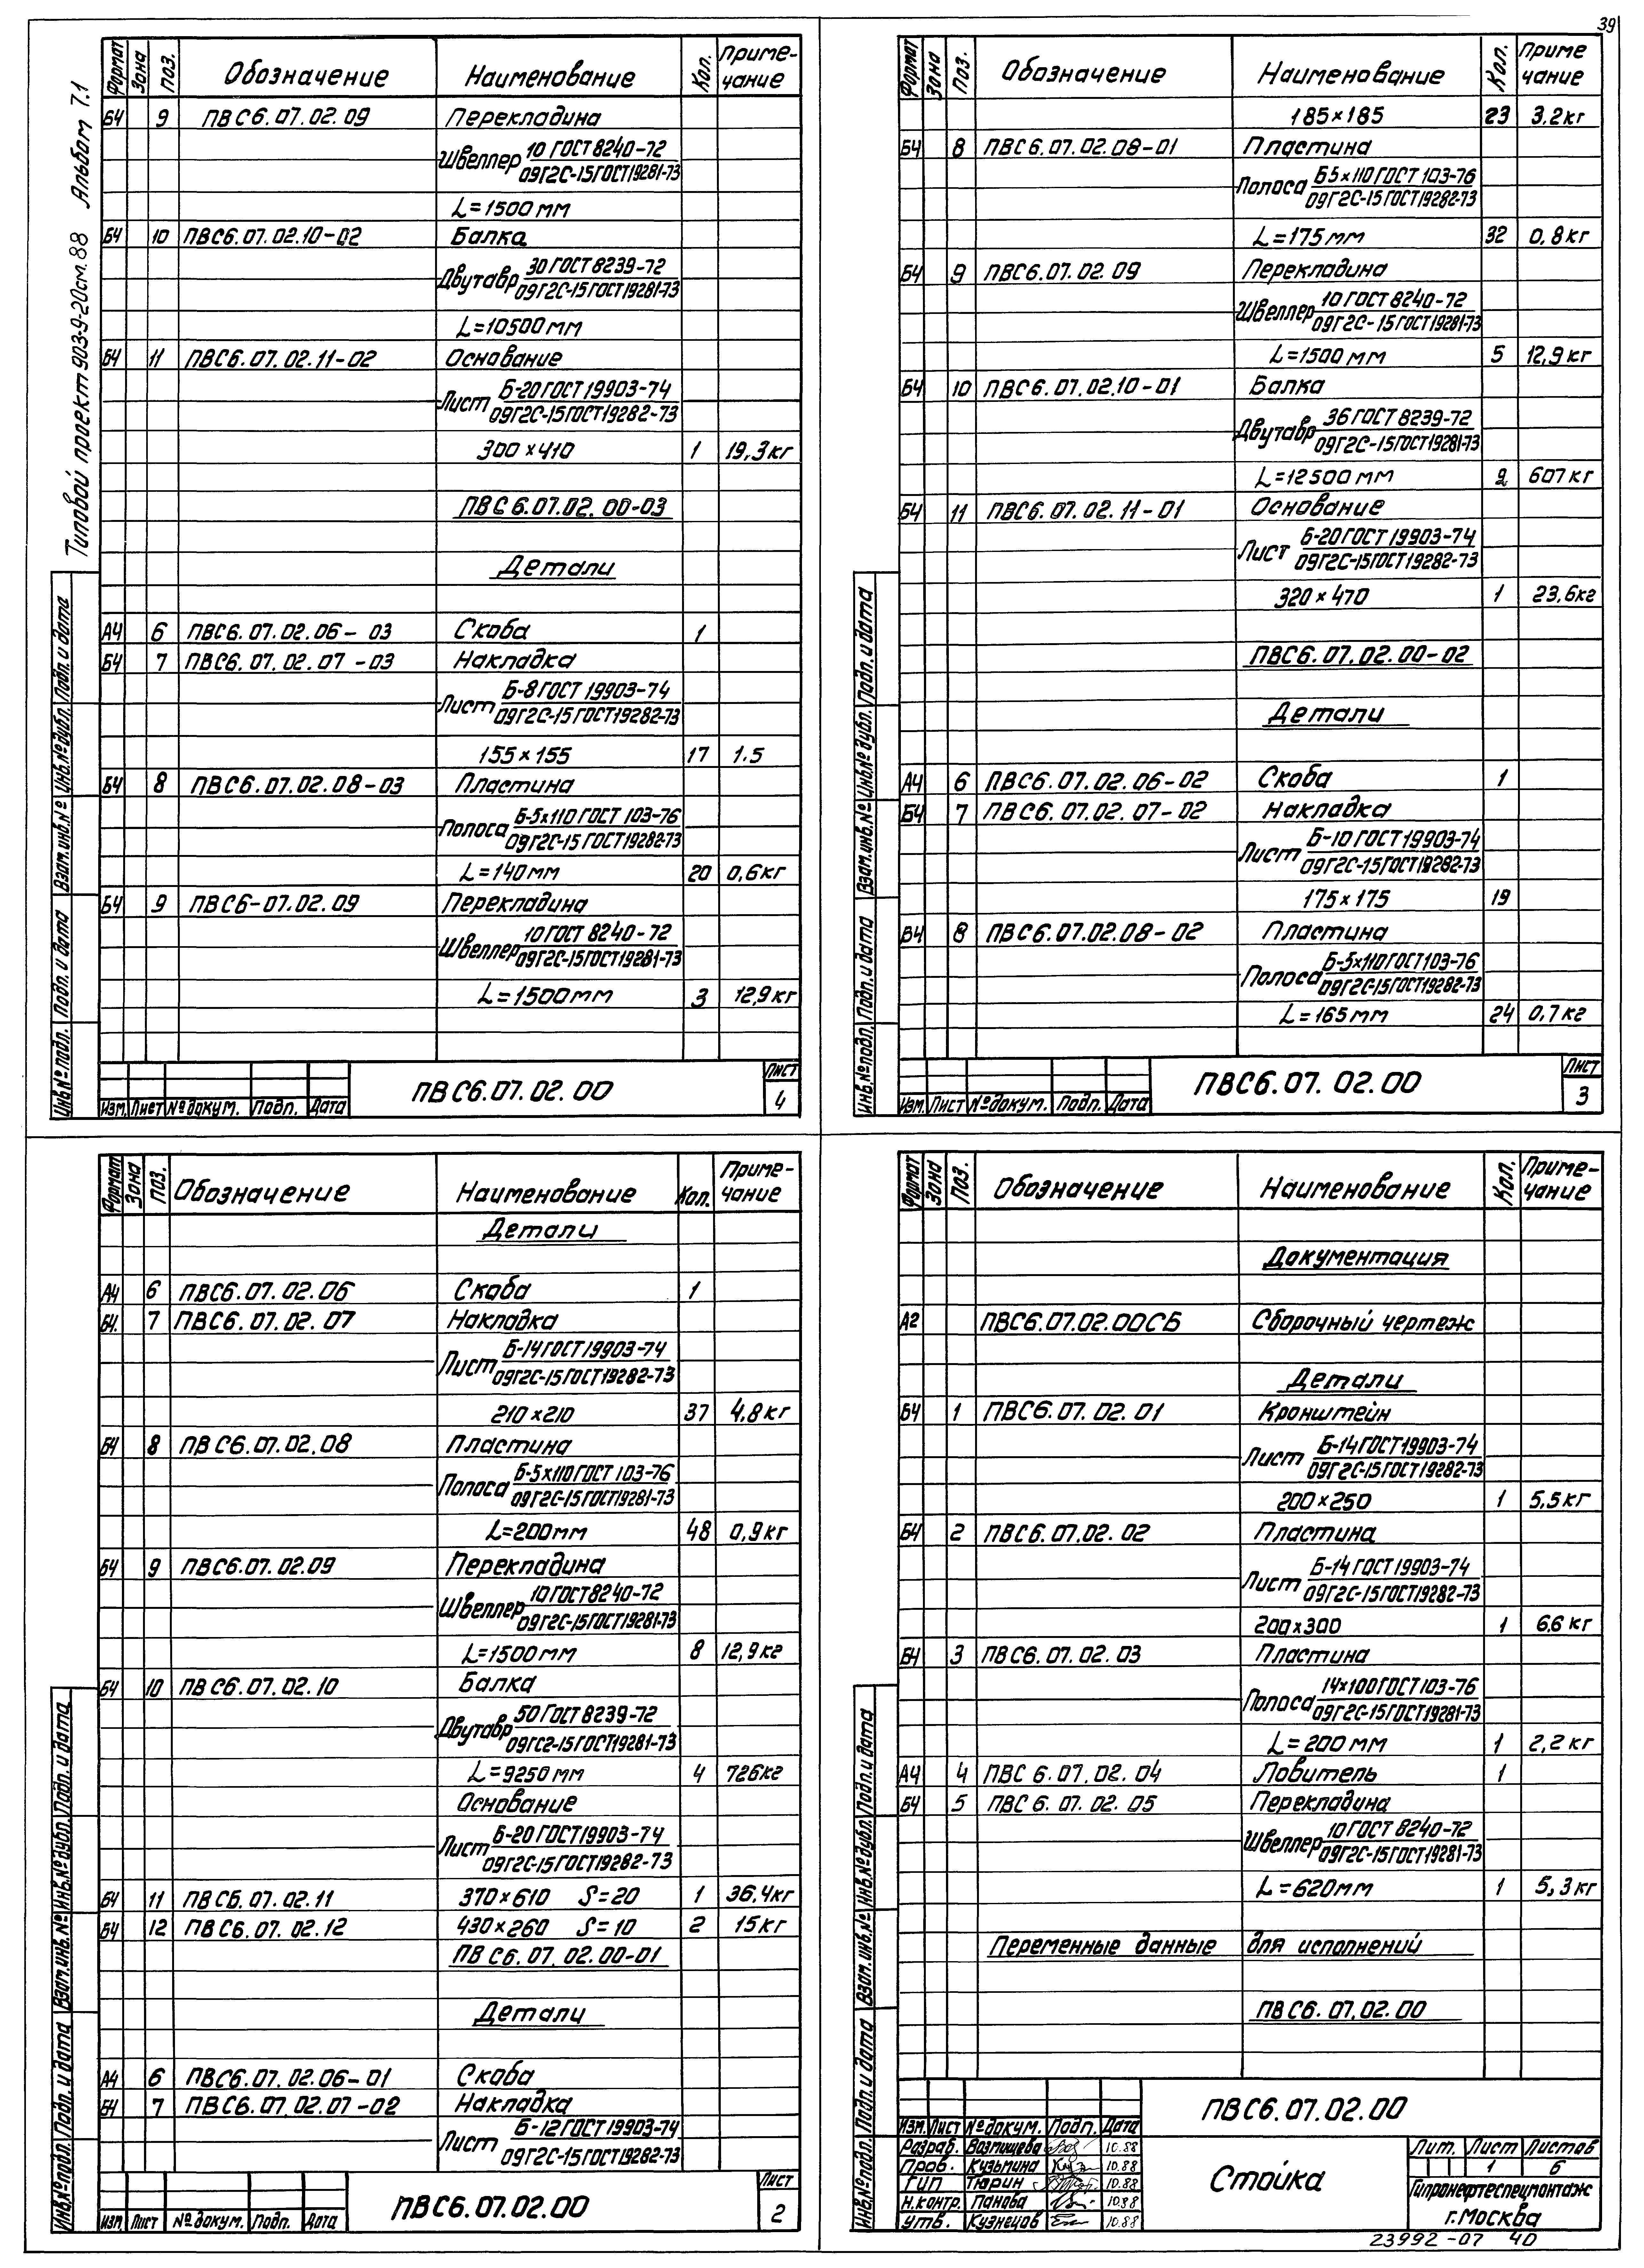 39
Типовой проект 903-9-20см.88 Альбом 7.1
Формат Зона Поз. Обозначение Наименование Кол. Приме-чание
Б4 9 ПВС6.07.02.09 Перекладина
Швеллер 10 ГОСТ 8240-72
09Г2С-15 ГОСТ 19281-73
L=1500мм
Б4 10 ПВС6.07.02.10-02 Балка
Двутавр 30 ГОСТ 8239-72
09Г2С-15 ГОСТ 19281-73
L=10500мм
Б4 11 ПВС6.07.02.11-02 Основание
Лист Б-20 ГОСТ 19903-74
09Г2С-15 ГОСТ 19282-73
300×410 1 19,3кг
ПВС6.07.02.00-03
Детали
А4 6 ПВС6.07.02.06-03 Скоба 1
Б4 7 ПВС6.07.02.07-03 Накладка
Лист Б-8 ГОСТ 19903-74
09Г2С-15 ГОСТ 19282-73
155×155 17 1.5
Б4 8 ПВС6.07.02.08-03 Пластина
Полоса Б-5×110 ГОСТ 103-76
09Г2С-15 ГОСТ 19282-73
L=140мм 20 0,6кг
Б4 9 ПВС6-07.02.09 Перекладина
Швеллер 10 ГОСТ 8240-72
09Г2С-15 ГОСТ 19281-73
L=1500мм 3 12,9кг
Инв.№подл. Подп. и дата Взам.инв.№ Инв.№дубл. Подп. и дата
Изм. Лист №докум. Подп. Дата
ПВС6.07.02.00
Лист
4
Формат Зона Поз. Обозначение Наименование Кол. Приме чание
185×185 23 3,2кг
Б4 8 ПВС6.07.02.08-01 Пластина
Полоса Б5×110 ГОСТ 103-76
09Г2С-15 ГОСТ 19282-73
L=175мм 32 0,8кг
Б4 9 ПВС6.07.02.09 Перекладина
Швеллер 10 ГОСТ 8240-72
09Г2С-15 ГОСТ 19281-73
L=1500мм 5 12,9кг
Б4 10 ПВС6.07.02.10-01 Балка
Двутавр 36 ГОСТ 8239-72
09Г2С-15 ГОСТ 19281-73
L=12500мм 2 607кг
Б4 11 ПВС6.07.02.11-01 Основание
Лист Б-20 ГОСТ 19903-74
09Г2С-15 ГОСТ 19282-73
320×470 1 23,6кг
ПВС6.07.02.00-02
Детали
А4 6 ПВС6.07.02.06-02 Скоба 1
Б4 7 ПВС6.07.02.07-02 Накладка
Лист Б-10 ГОСТ 19903-74
09Г2С-15 ГОСТ 19282-73
175×175 19
Б4 8 ПВС6.07.02.08-02 Пластина
Полоса Б-5×110 ГОСТ 103-76
09Г2С-15 ГОСТ 19282-73
L=165мм 24 0,7кг
Инв.№подл. Подп. и дата Взам.инв.№ Инв№ дубл. Подп. и дата
Изм. Лист №докум. Подп. Дата
ПВС6.07.02.00
Лист
3
Формат Зона Поз. Обозначение Наименование Кол. Приме-чание
Детали
А4 6 ПВС6.07.02.06 Скоба 1
Б4. 7 ПВС6.07.02.07 Накладка
Лист Б-14 ГОСТ 19903-74
09Г2С-15 ГОСТ 19282-73
210×210 37 4,8кг
Б4 8 ПВС6.07.02.08 Пластина
Полоса Б-5×110 ГОСТ 103-76
09Г2С-15 ГОСТ 19281-73
L=200мм 48 0,9кг
Б4 9 ПВС6.07.02.09 Перекладина
Швеллер 10 ГОСТ 8240-72
09Г2С-15 ГОСТ 19281-73
L=1500мм 8 12,9кг
Б4 10 ПВС6.07.02.10 Балка
Двутавр 50 ГОСТ 8239-72
09ГС2-15 ГОСТ 19281-73
L=9250мм 4 726кг
Основание
Лист Б-20 ГОСТ 19903-74
09Г2С-15 ГОСТ 19282-73
Б4 11 ПВС6.07.02.11 370×610 S=20 1 36.4кг
Б4 12 ПВС6.07.02.12 430×260 S=10 2 15кг
ПВС6.07.02.00-01
Детали
А4 6 ПВС6.07.02.06-01 Скоба
Б4 7 ПВС6.07.02.07-02 Накладка
Лист Б-12 ГОСТ 19903-74
09Г2С-15 ГОСТ 19282-73
Инв.№подл. Подп. и дата Взам.инв.№ Инв.№дубл. Подп. и дата
Изм. Лист №докум. Подп. Дата
ПВС6.07.02.00
Лист
2
Формат Зона Поз. Обозначение Наименование Кол. Приме-чание
Документация
А2 ПВС6.07.02.00СБ Сборочный чертеж
Детали
Б4 1 ПВС6.07.02.01 Кронштейн
Лист Б-14 ГОСТ 19903-74
09Г2С-15 ГОСТ 19282-73
200×250 1 5,5кг
Б4 2 ПВС6.07.02.02 Пластина
Лист Б-14 ГОСТ 19903-74
09Г2С-15 ГОСТ 19282-73
200×300 1 6.6кг
Б4 3 ПВС6.07.02.03 Пластина
Полоса 14×100 ГОСТ 103-76
09Г2С-15 ГОСТ 19281-73
L=200мм 1 2,2кг
А4 4 ПВС6.07.02.04 Ловитель 1
Б4 5 ПВС6.07.02.05 Перекладина
Швеллер 10 ГОСТ 8240-72
09Г2С-15 ГОСТ 19281-73
L=620мм 1 5,3кг
Переменные данные для исполнений
ПВС6.07.02.00
Инв.№подл. Подп. и дата Взам.инв.№ Инв.№дубл. Подп. и дата
Изм. Лист №докум. Подп. Дата
ПВС6.07.02.00
Разраб. Возмищева 10.88
Пров. Кузьмина 10.88
ГИП Тюрин 10.88
Н.контр. Панова 10.88
Утв. Кузнецов 10.88
Стойка
Лит. Лист Листов
1 6
Гипронефтеспецмонтаж
г.Москва
23992-07 40